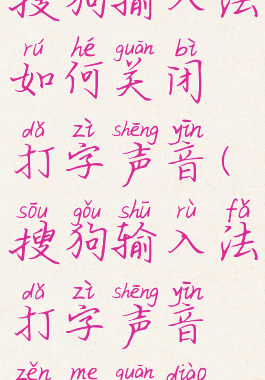 搜狗输入法
rú hé guān bì
如何关闭
dǎ zì shēng yīn
打字声音(
sōu gǒu shū rù fǎ
搜狗输入法
dǎ zì shēng yīn
打字声音
zěn me guān diào